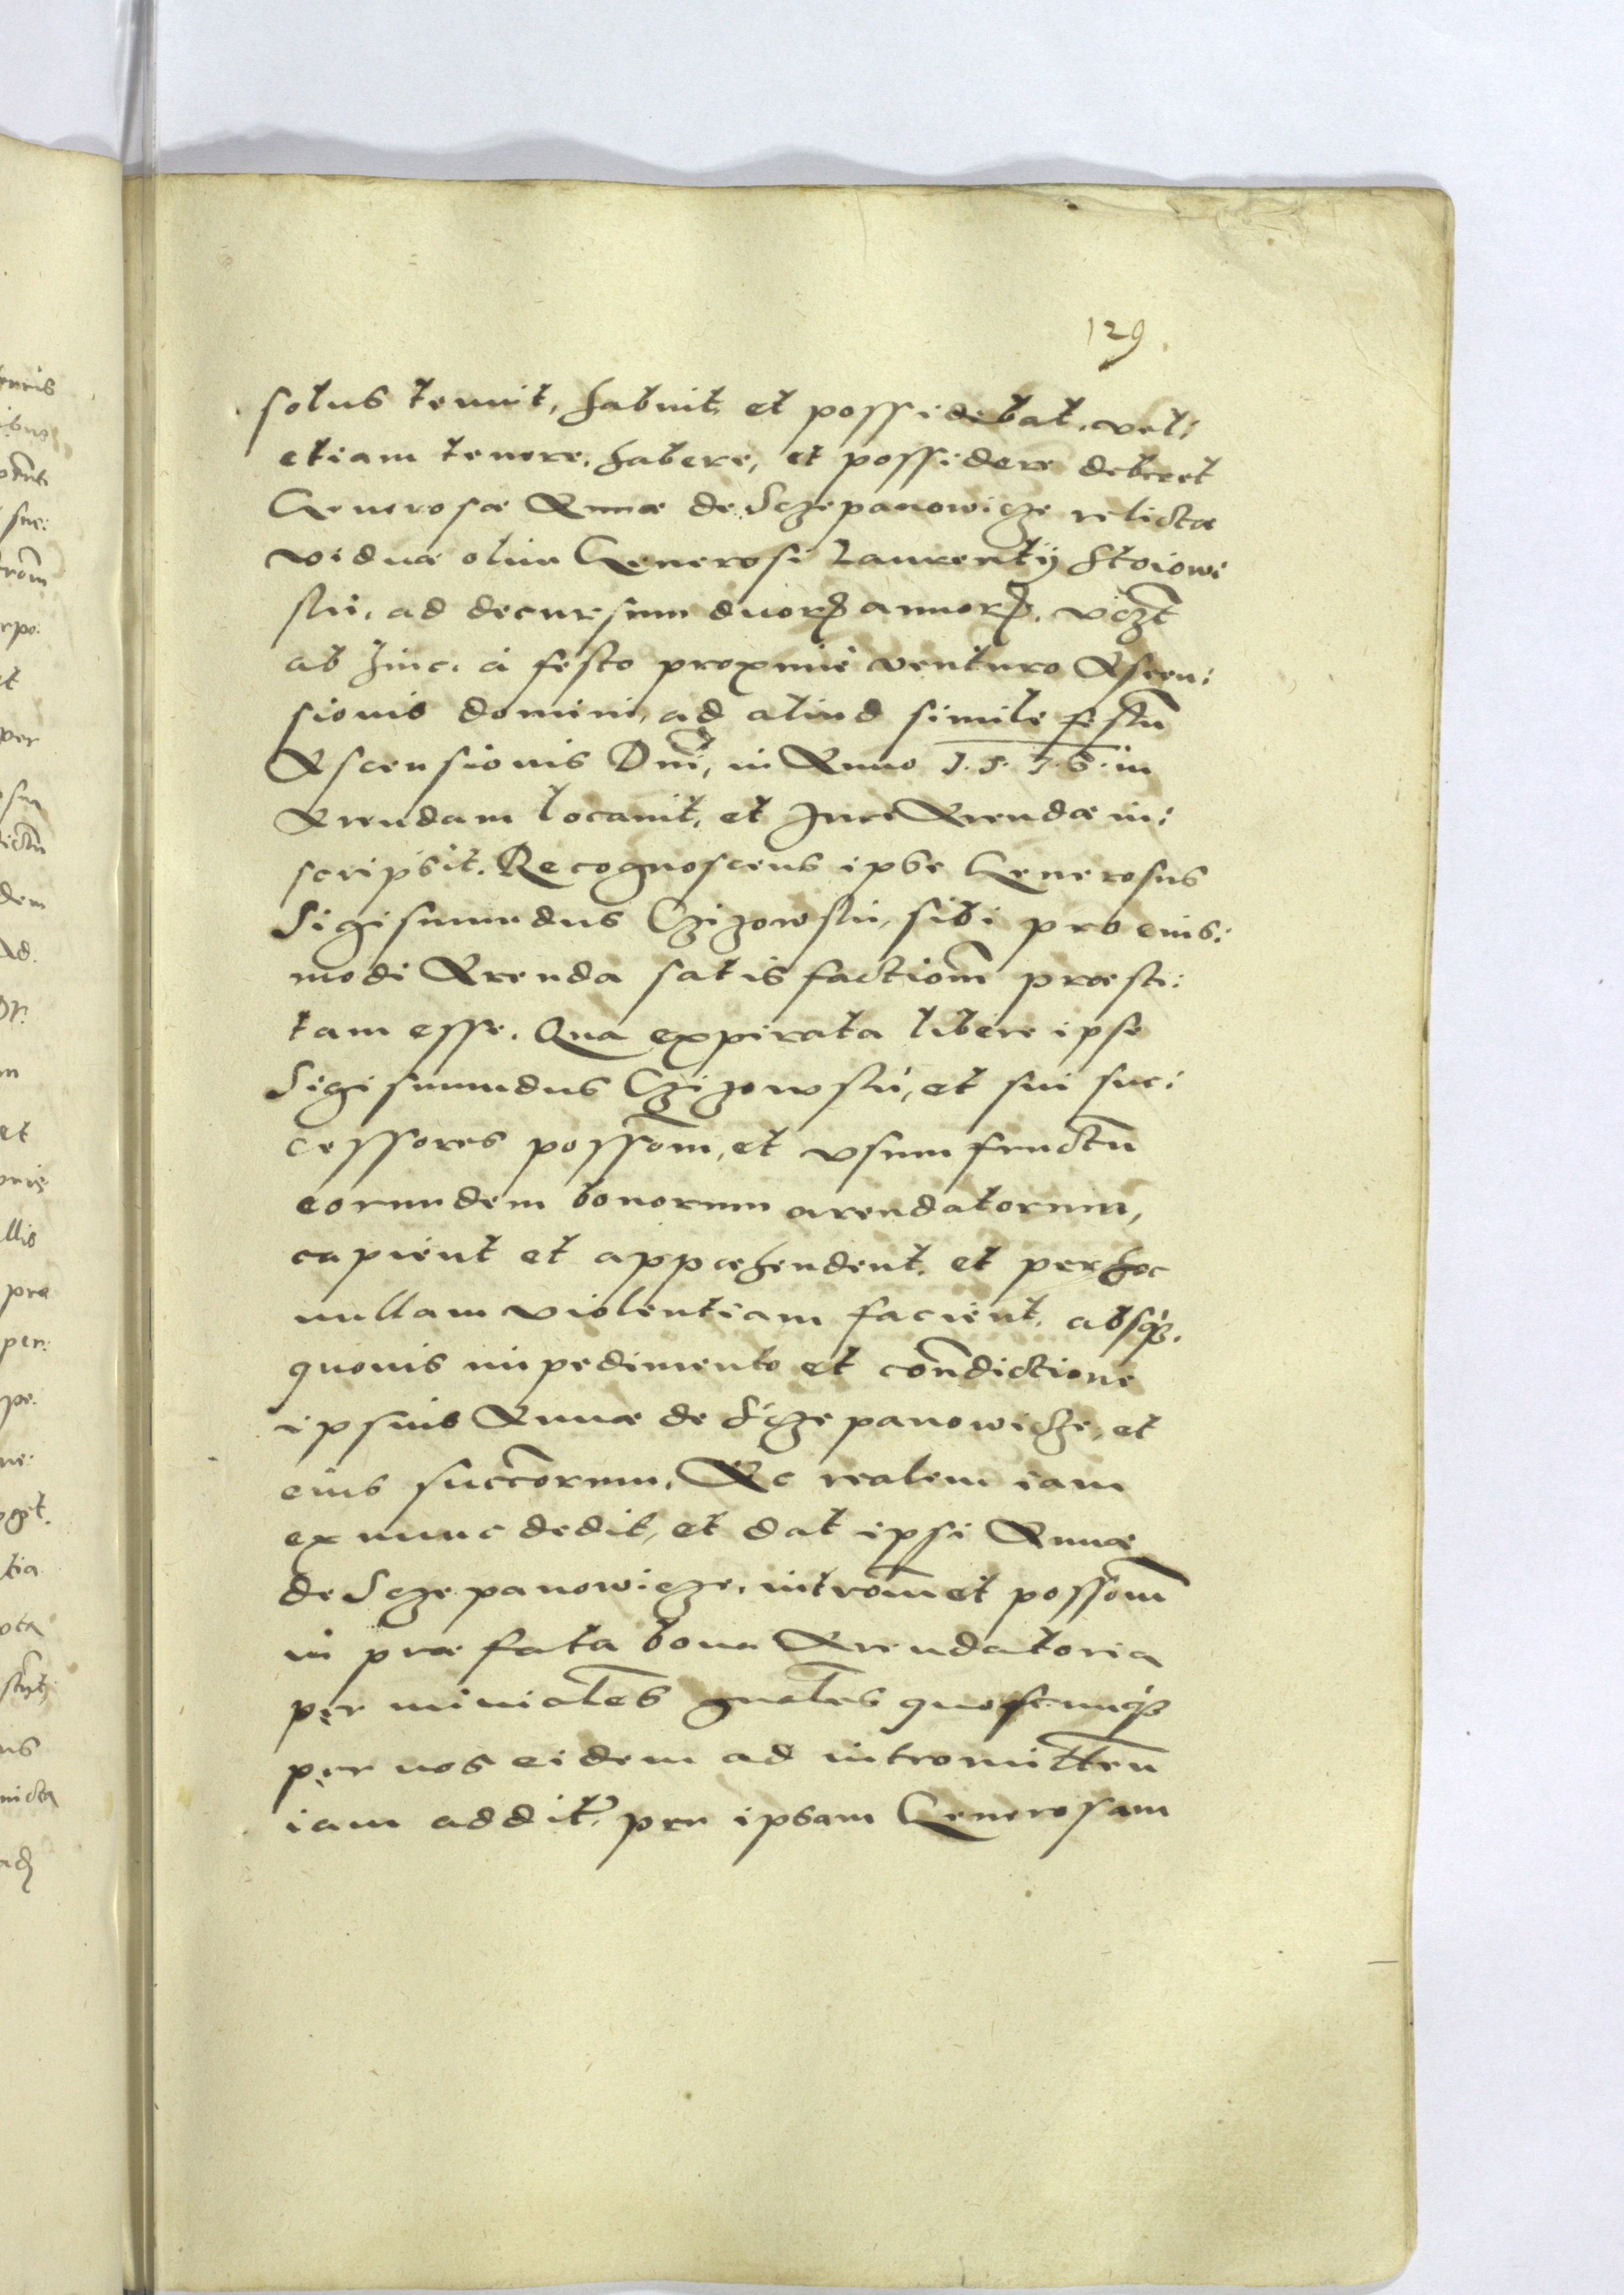 129
solus tenuit, habuit, et possidebat, vel:
etiam tenere, habere, et possidere deberet
Generosæ Annæ de Sczepanowicze relictæ
viduæ olim Generosi Laurentij Stoiow
skii, ad decursum duorꝝ annorꝝ, vczt
ab hinc, á festo proxime venturo Ascen:
sionis domini, ad aliud simile festū
Ascensionis Dni, in Anno 1.5.7.8. in
Arendam locauit, et Jure Arendæ in:
scripsit. Recognoscens ipse Generosus
Sigismundus Czizowskii, sibi pro eius:
modi Arenda satisfactiom̃ præsti:
tam esse. Qua expirata libere ipse
Sigismundus Czizowskii, et sui suc:
cessores possom̃, et vsumfructū
eorundem bonorum arendatorum,
capient et appræhendent, et per hoc
nullam violentiam facient, absqꝫ.
quouis impedimento et con̄dictione
ipsius Annæ de Sczepanowicze, et
eius succorum, Ac realem iam
ex nunc dedit, et dat ipsi Annæ
de Sczepanowicze, introm̃ et possom̃
in præfata bona Arendatoria
per miniales gnales quoscunqꝫ
per nos eidem ad intromitten̄
iam addit. per ipsam Generosam